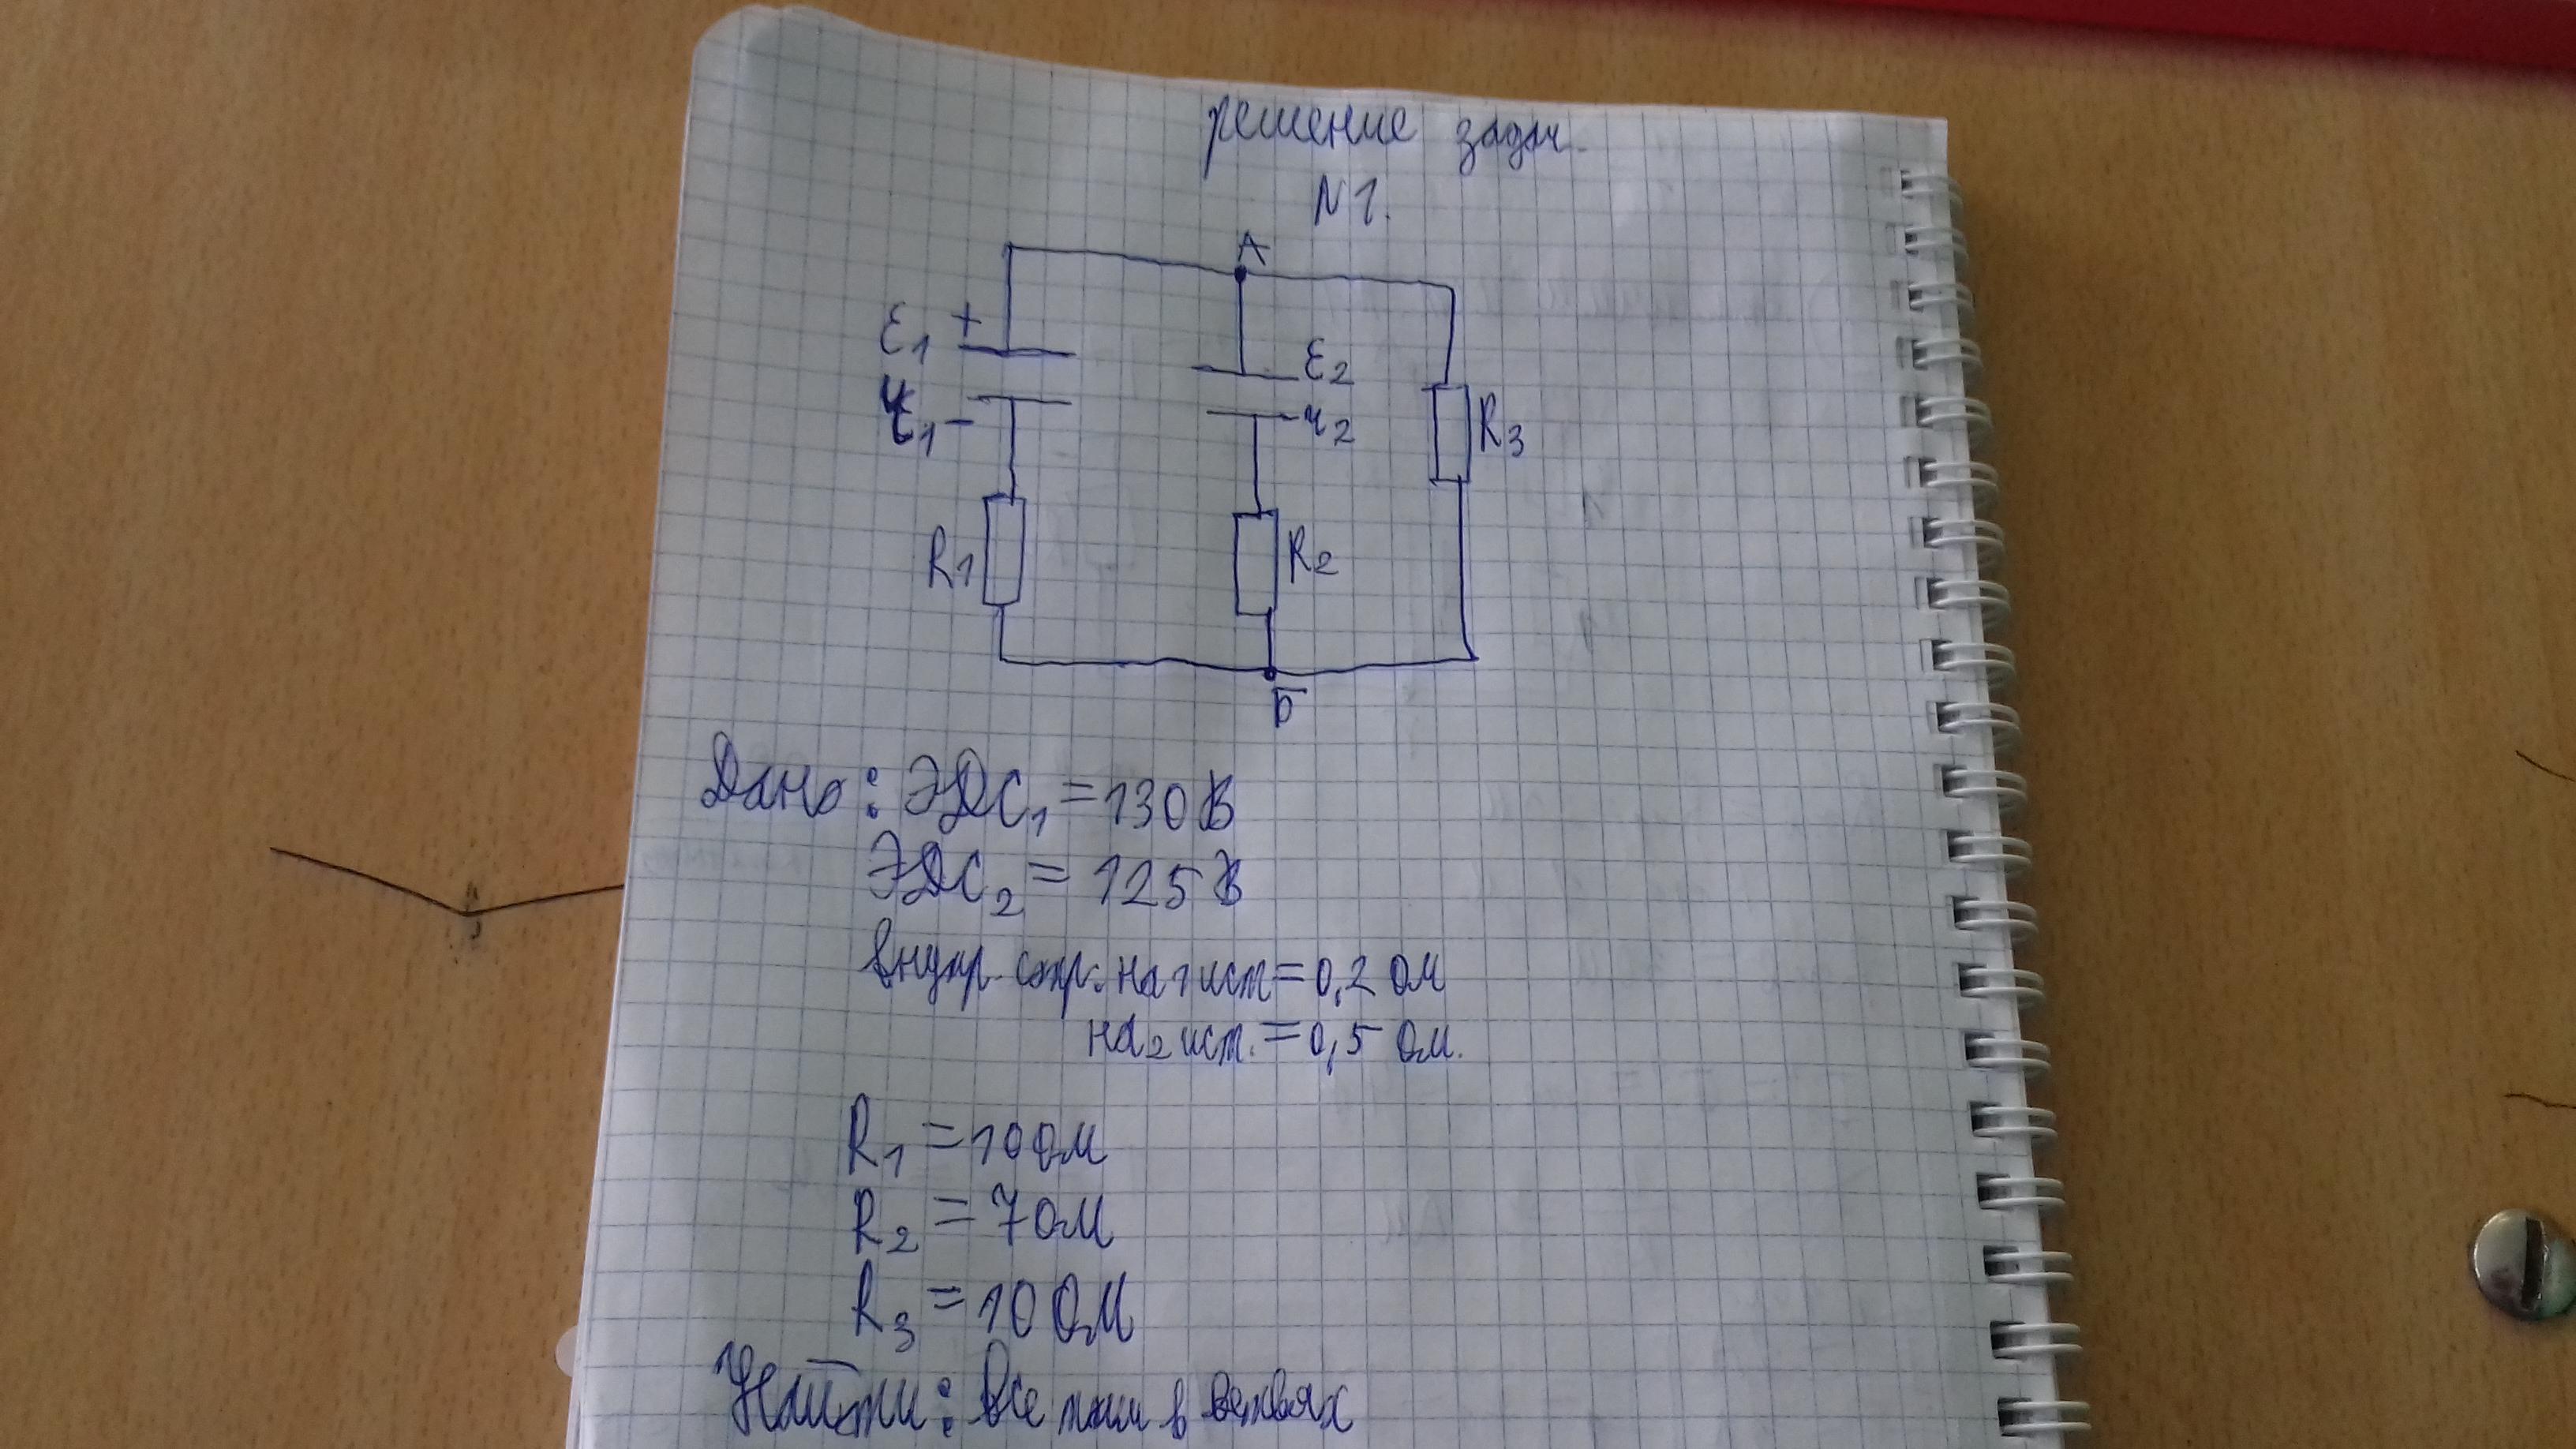 решение задач.
N1.
А
ε1 +
ε2
r1 -
r2
R3
R1
R2
Б
Дано: ЭДС1 = 130 В
ЭДС2 = 125 В
внутр. сопр. на 1 ист = 0,2 ом
на 2 ист. = 0,5 ом.
R1 = 10 ом
R2 = 7 ом
R3 = 10 ом
Найти: Все токи в ветвях